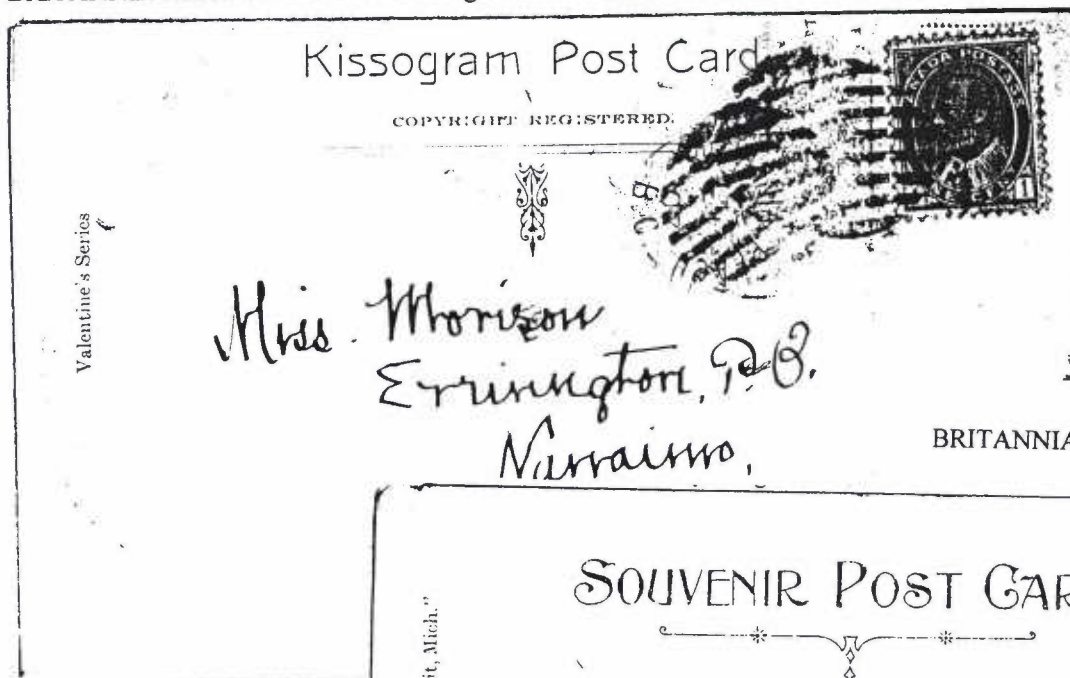 Kissogram Post Card
COPYRIGHT REGISTERED.
CANADA POSTAGE
1
B C
Valentine's Series
Miss Morison
Errington, P.O.
Nanaimo,
BRITANNIA
SOUVENIR POST CAR
it, Mich."